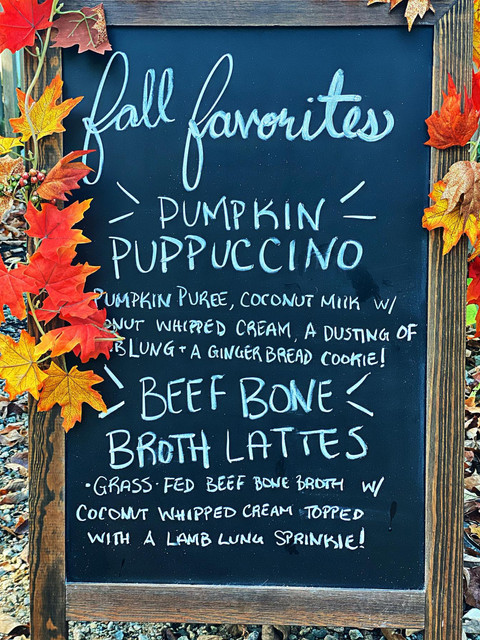 fall favorites
PUMPKIN
PUPPUCCINO
PUMPKIN PUREE, COCONUT MILK W/
WHIPPED CREAM, A DUSTING OF
LUNG + A GINGERBREAD COOKIE!
BEEF BONE
BROTH LATTES
• GRASS-FED BEEF BONE BROTH W/
COCONUT WHIPPED CREAM TOPPED
WITH A LAMB LUNG SPRINKLE!